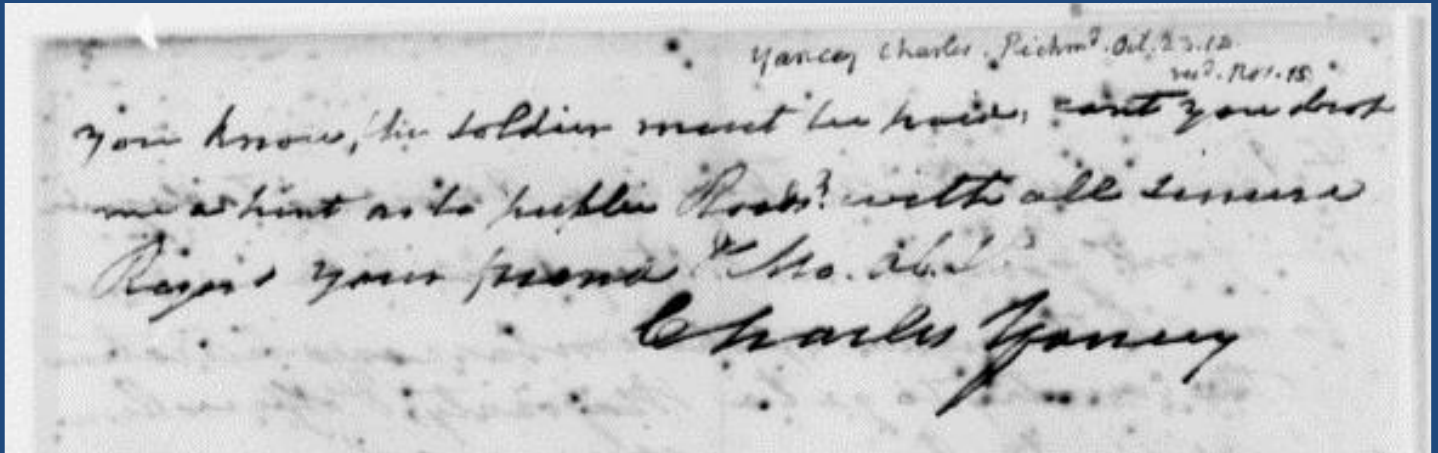 Yancey Charles. Richmd. Oct. 23. 12.
recd. Nov. 15
you know, the soldier must be paid, cant you drop
me a hint as to public Roads? with all sincere
your friend & Mo. Ob. S.
Charles Yancey